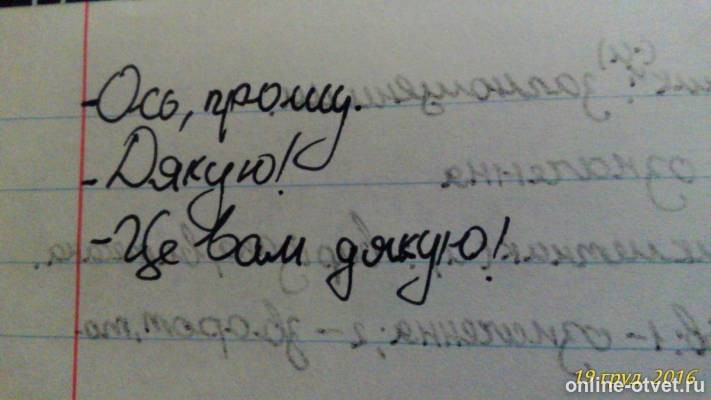 -Ось, прошу.
-Дякую!
-Це вам дякую!
19 груд. 2016
online-otvet.ru